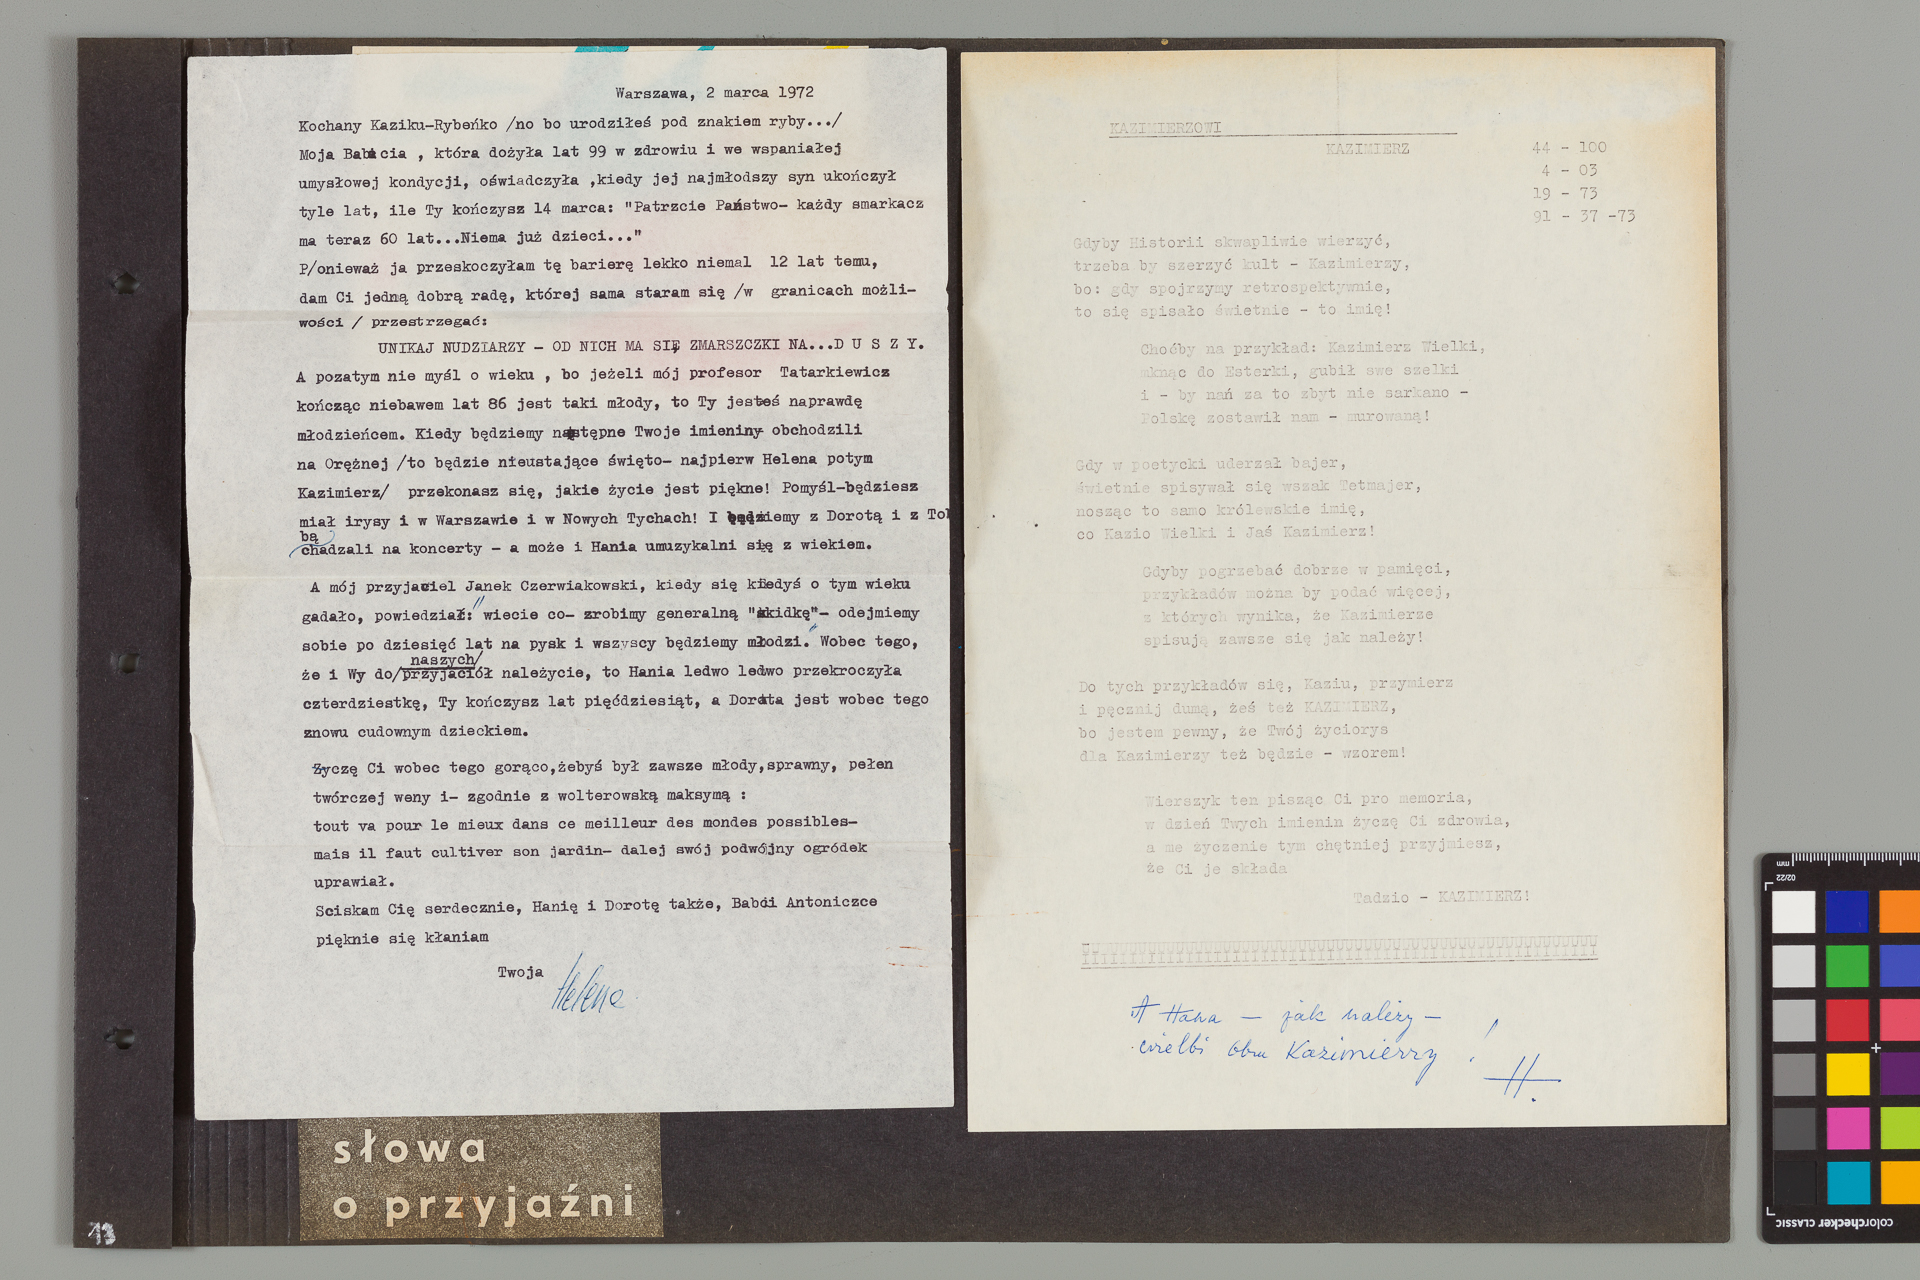 Warszawa, 2 marca 1972
Kochany Kaziku-Rybeńko /no bo urodziłeś pod znakiem ryby.../
Moja Babcia , która dożyła lat 99 w zdrowiu i we wspaniałej
umysłowej kondycji, oświadczyła ,kiedy jej najmłodszy syn ukończył
tyle lat, ile Ty kończysz 14 marca: "Patrzcie Państwo- każdy smarkacz
ma teraz 60 lat...Niema już dzieci..."
P/onieważ ja przeskoczyłam tę barierę lekko niemal 12 lat temu,
dam Ci jedną dobrą radę, której sama staram się /w granicach możli-
wości / przestrzegać:
UNIKAJ NUDZIARZY - OD NICH MA SIĘ ZMARSZCZKI NA...D U S Z Y.
A pozatym nie myśl o wieku , bo jeżeli mój profesor Tatarkiewicz
kończąc niebawem lat 86 jest taki młody, to Ty jesteś naprawdę
młodzieńcem. Kiedy będziemy następne Twoje imieniny obchodzili
na Orężnej /to będzie nieustające święto- najpierw Helena potym
Kazimierz/ przekonasz się, jakie życie jest piękne! Pomyśl-będziesz
miał irysy i w Warszawie i w Nowych Tychach! I będziemy z Dorotą i z To
bą
chadzali na koncerty - a może i Hania umuzykalni się z wiekiem.
A mój przyjaciel Janek Czerwiakowski, kiedy się kiedyś o tym wieku
gadało, powiedział:" wiecie co- zrobimy generalną "skidkę"- odejmiemy
sobie po dziesięć lat na pysk i wszyscy będziemy młodzi." Wobec tego,
naszych/
że i Wy do/przyjaciół należycie, to Hania ledwo ledwo przekroczyła
czterdziestkę, Ty kończysz lat pięćdziesiąt, a Dorota jest wobec tego
znowu cudownym dzieckiem.
Zyczę Ci wobec tego gorąco,żebyś był zawsze młody,sprawny, pełen
twórczej weny i- zgodnie z wolterowską maksymą :
tout va pour le mieux dans ce meilleur des mondes possibles-
mais il faut cultiver son jardin- dalej swój podwójny ogródek
uprawiał.
Sciskam Cię serdecznie, Hanię i Dorotę także, Babci Antoniczce
pięknie się kłaniam
Twoja
Helena
KAZIMIERZOWI
KAZIMIERZ
44 - 100
4 - 03
19 - 73
91 - 37 -73
Gdyby Historii skwapliwie wierzyć,
trzeba by szerzyć kult - Kazimierzy,
bo: gdy spojrzymy retrospektywnie,
to się spisało świetnie - to imię!
Choćby na przykład: Kazimierz Wielki,
mknąc do Esterki, gubił swe szelki
i - by nań za to zbyt nie sarkano -
Polskę zostawił nam - murowaną!
Gdy w poetycki uderzał bajer,
świetnie spisywał się wszak Tetmajer,
nosząc to samo królewskie imię,
co Kazio Wielki i Jaś Kazimierz!
Gdyby pogrzebać dobrze w pamięci,
przykładów można by podać więcej,
z których wynika, że Kazimierze
spisują zawsze się jak należy!
Do tych przykładów się, Kaziu, przymierz
i pęcznij dumą, żeś też KAZIMIERZ,
bo jestem pewny, że Twój życiorys
dla Kazimierzy też będzie - wzorem!
Wierszyk ten pisząc Ci pro memoria,
w dzień Twych imienin życzę Ci zdrowia,
a me życzenie tym chętniej przyjmiesz,
że Ci je składa
Tadzio - KAZIMIERZ!
A Hana - jak należy -
wielbi obu Kazimierzy!
H.
słowa
o przyjaźni
13
mm
02/22
colorchecker CLASSIC